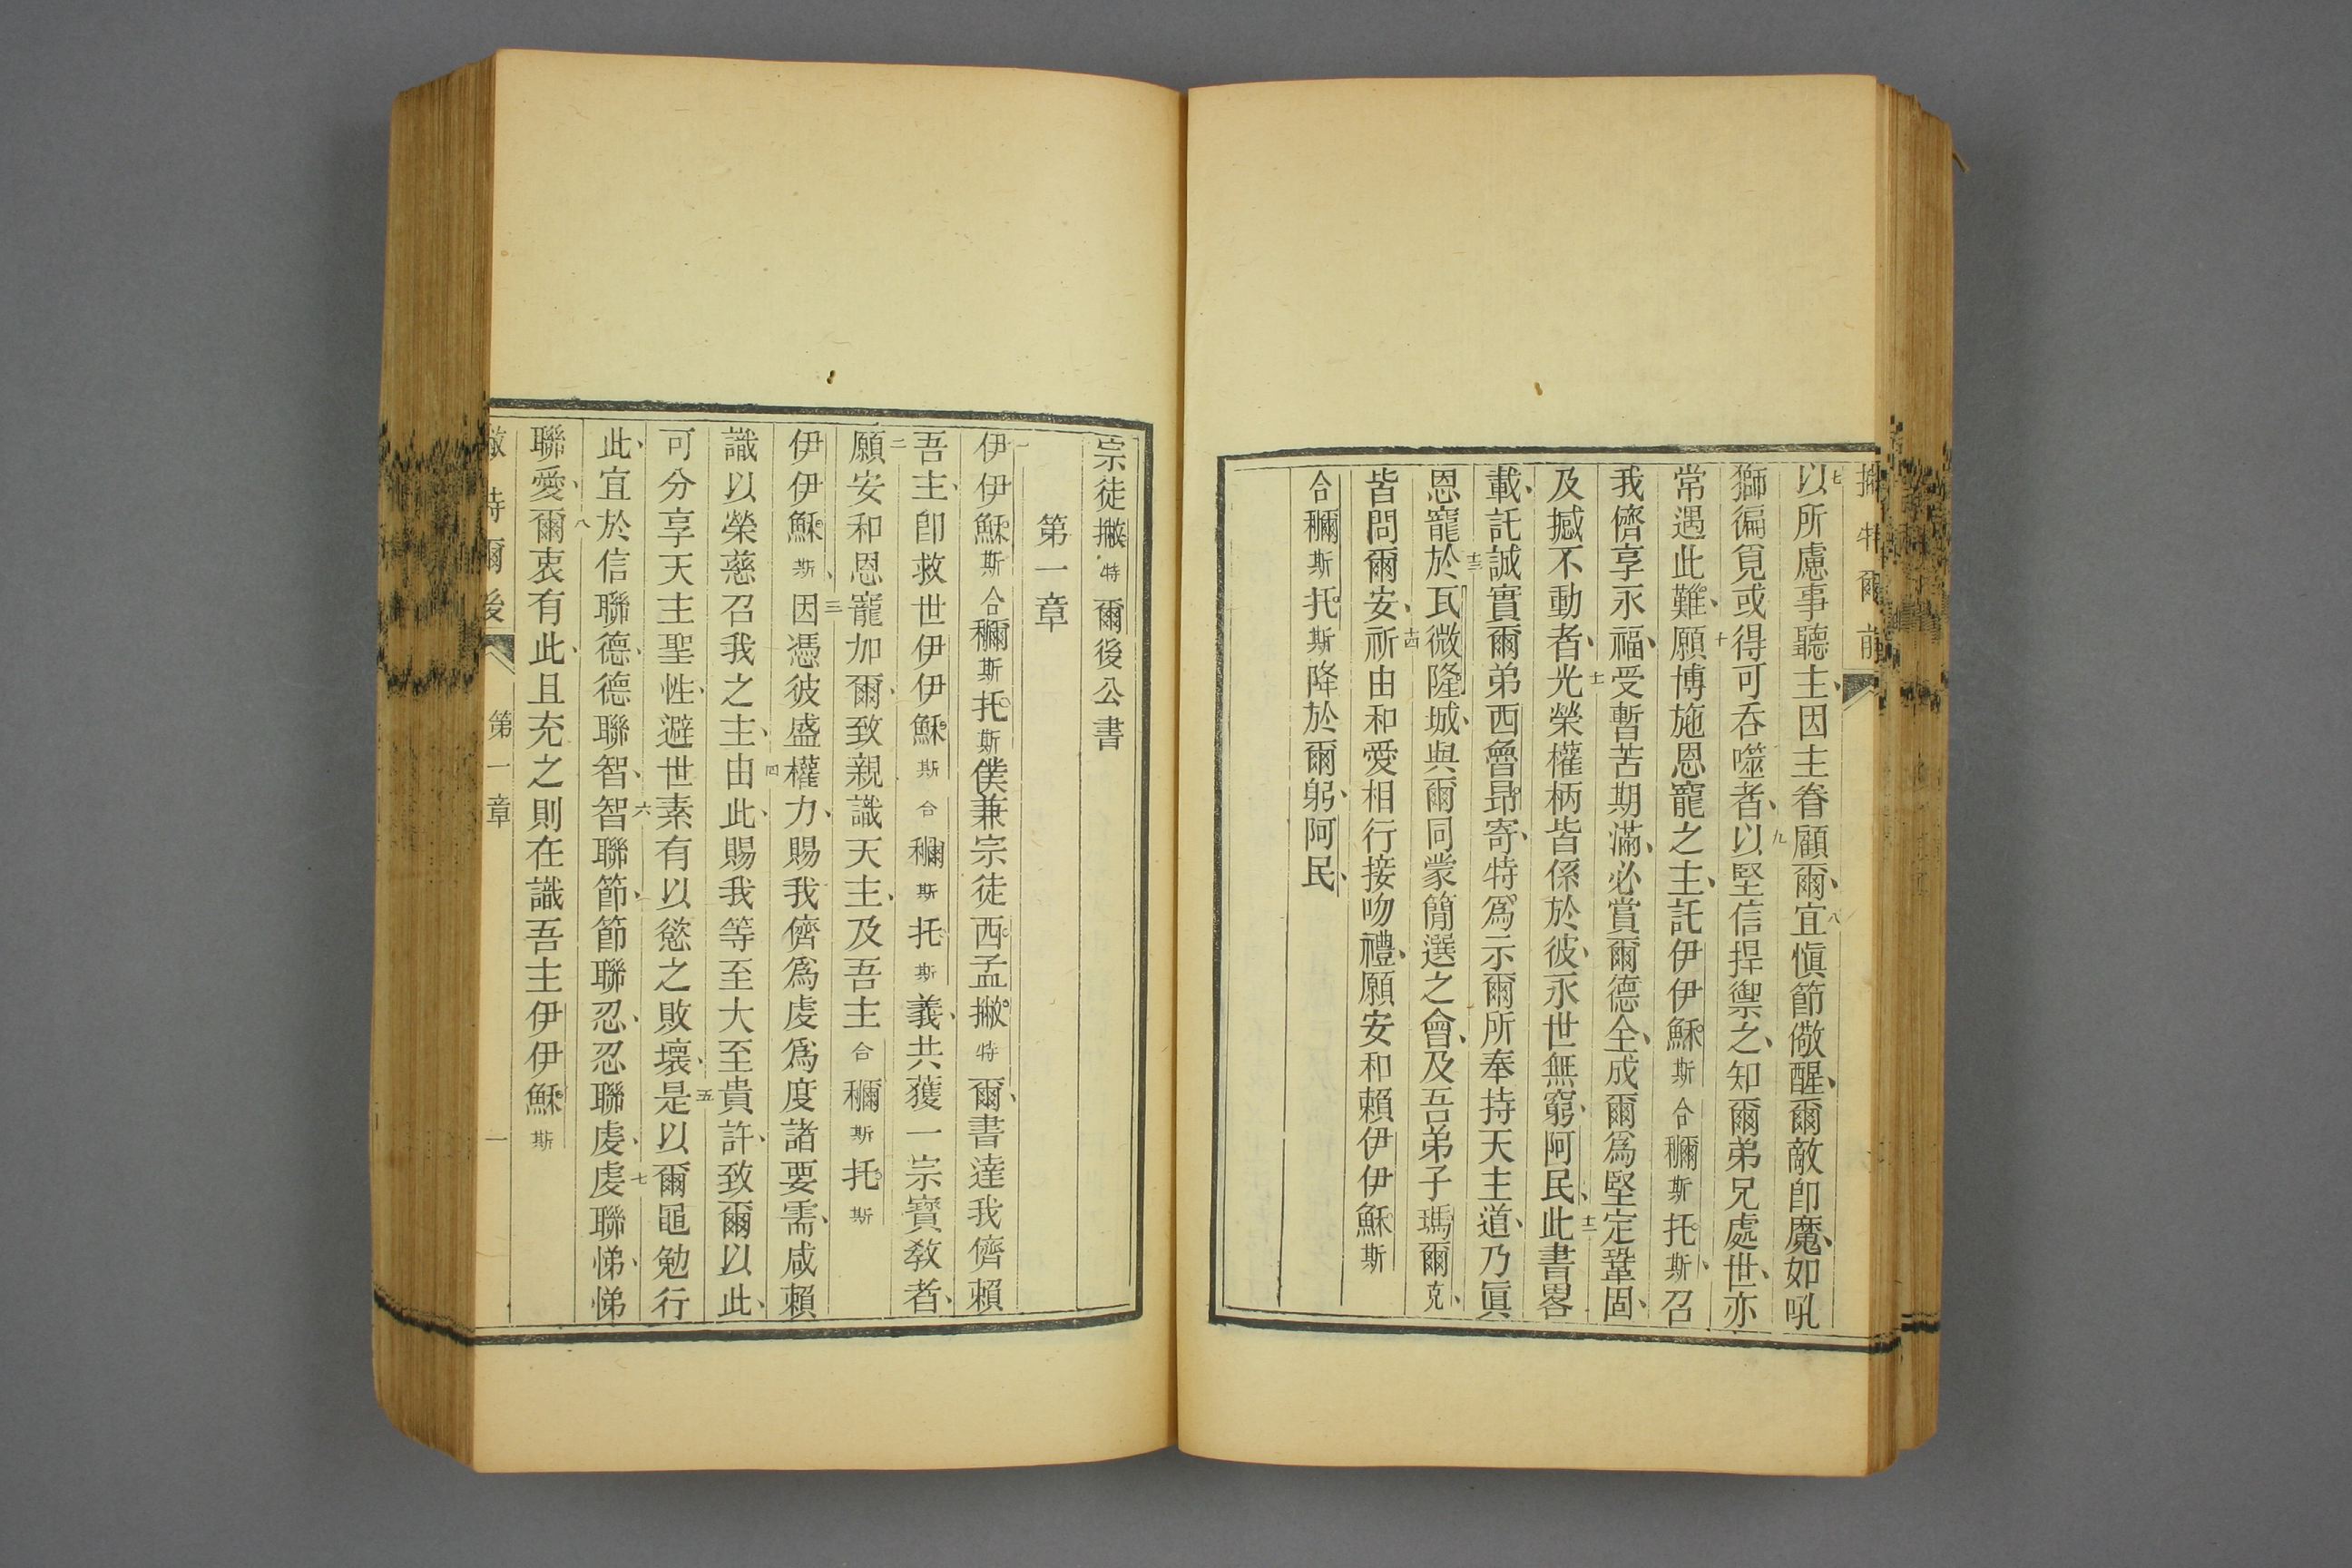 撇特爾前
七以所慮事聽主、因主眷顧爾、八宜愼節儆醒、爾敵卽魔、如吼
獅徧覓或得可吞噬者、九以堅信捍禦之、知爾弟兄處世、亦
常遇此難、十願博施恩寵之主、託伊伊穌斯合穪斯托斯、召
我儕享永福、受暫苦期滿、必賞爾德全、成爾爲堅定鞏固、
及撼不動者、十一光榮權柄皆係於彼、永世無窮、阿民、十二此書畧
載、託誠實爾弟西魯昂寄、特爲示爾所奉持天主道、乃眞
恩寵、十三於瓦微隆城、與爾同蒙簡選之會、及吾弟子瑪爾克、
皆問爾安、十四祈由和愛相行接吻禮、願安和賴伊伊穌斯
合穪斯托斯降於爾躬、阿民、
宗徒撇特爾後公書
第一章
一伊伊穌斯合穪斯托斯僕兼宗徒西孟撇特爾、書達我儕賴
吾主、卽救世伊伊穌斯合穪斯托斯義、共獲一宗寶敎者、
二願安和恩寵加爾、致親識天主、及吾主合穪斯托斯
伊伊穌斯、三因憑彼盛權力、賜我儕爲虔爲度諸要需、咸賴
識以榮慈召我之主、四由此、賜我等至大至貴許、致爾以此、
可分享天主聖性、避世素有以慾之敗壞、五是以爾黽勉行
此、宜於信聯德、德聯智、六智聯節、節聯忍、忍聯虔、七虔聯悌、悌
聯愛、八爾衷有此、且充之、則在識吾主伊伊穌斯
撇特爾後 第一章 一